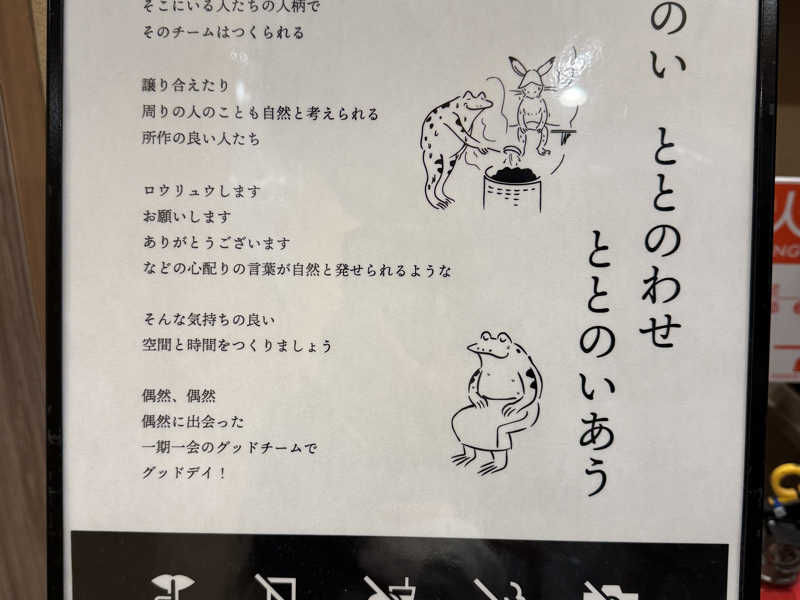 のい
ととのわせ
ととのいあう
そこにいる人たちの人柄で
そのチームはつくられる
譲り合えたり
周りの人のことも自然と考えられる
所作の良い人たち
ロウリュウします
お願いします
ありがとうございます
などの心配りの言葉が自然と発せられるような
そんな気持ちの良い
空間と時間をつくりましょう
偶然、偶然
偶然に出会った
一期一会のグッドチームで
グッドデイ！